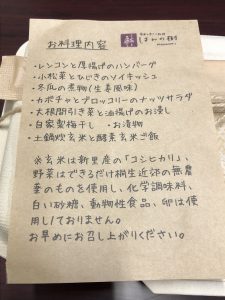 お料理内容
・レンコンと厚揚げのハンバーグ
・小松菜とひじきのソイキッシュ
・冬瓜の煮物(生姜風味)
・カボチャとブロッコリーのナッツサラダ
・大根間引き菜と油揚げのお浸し
・自家製梅干し ・お漬物
・土鍋炊玄米と酵素玄米ご飯
※玄米は新里産の「コシヒカリ」、
野菜はできるだけ桐生近郊の無農
薬のものを使用し、化学調味料、
白い砂糖、動物性食品、卵は使
用しておりません。
お早めにお召し上がりください。